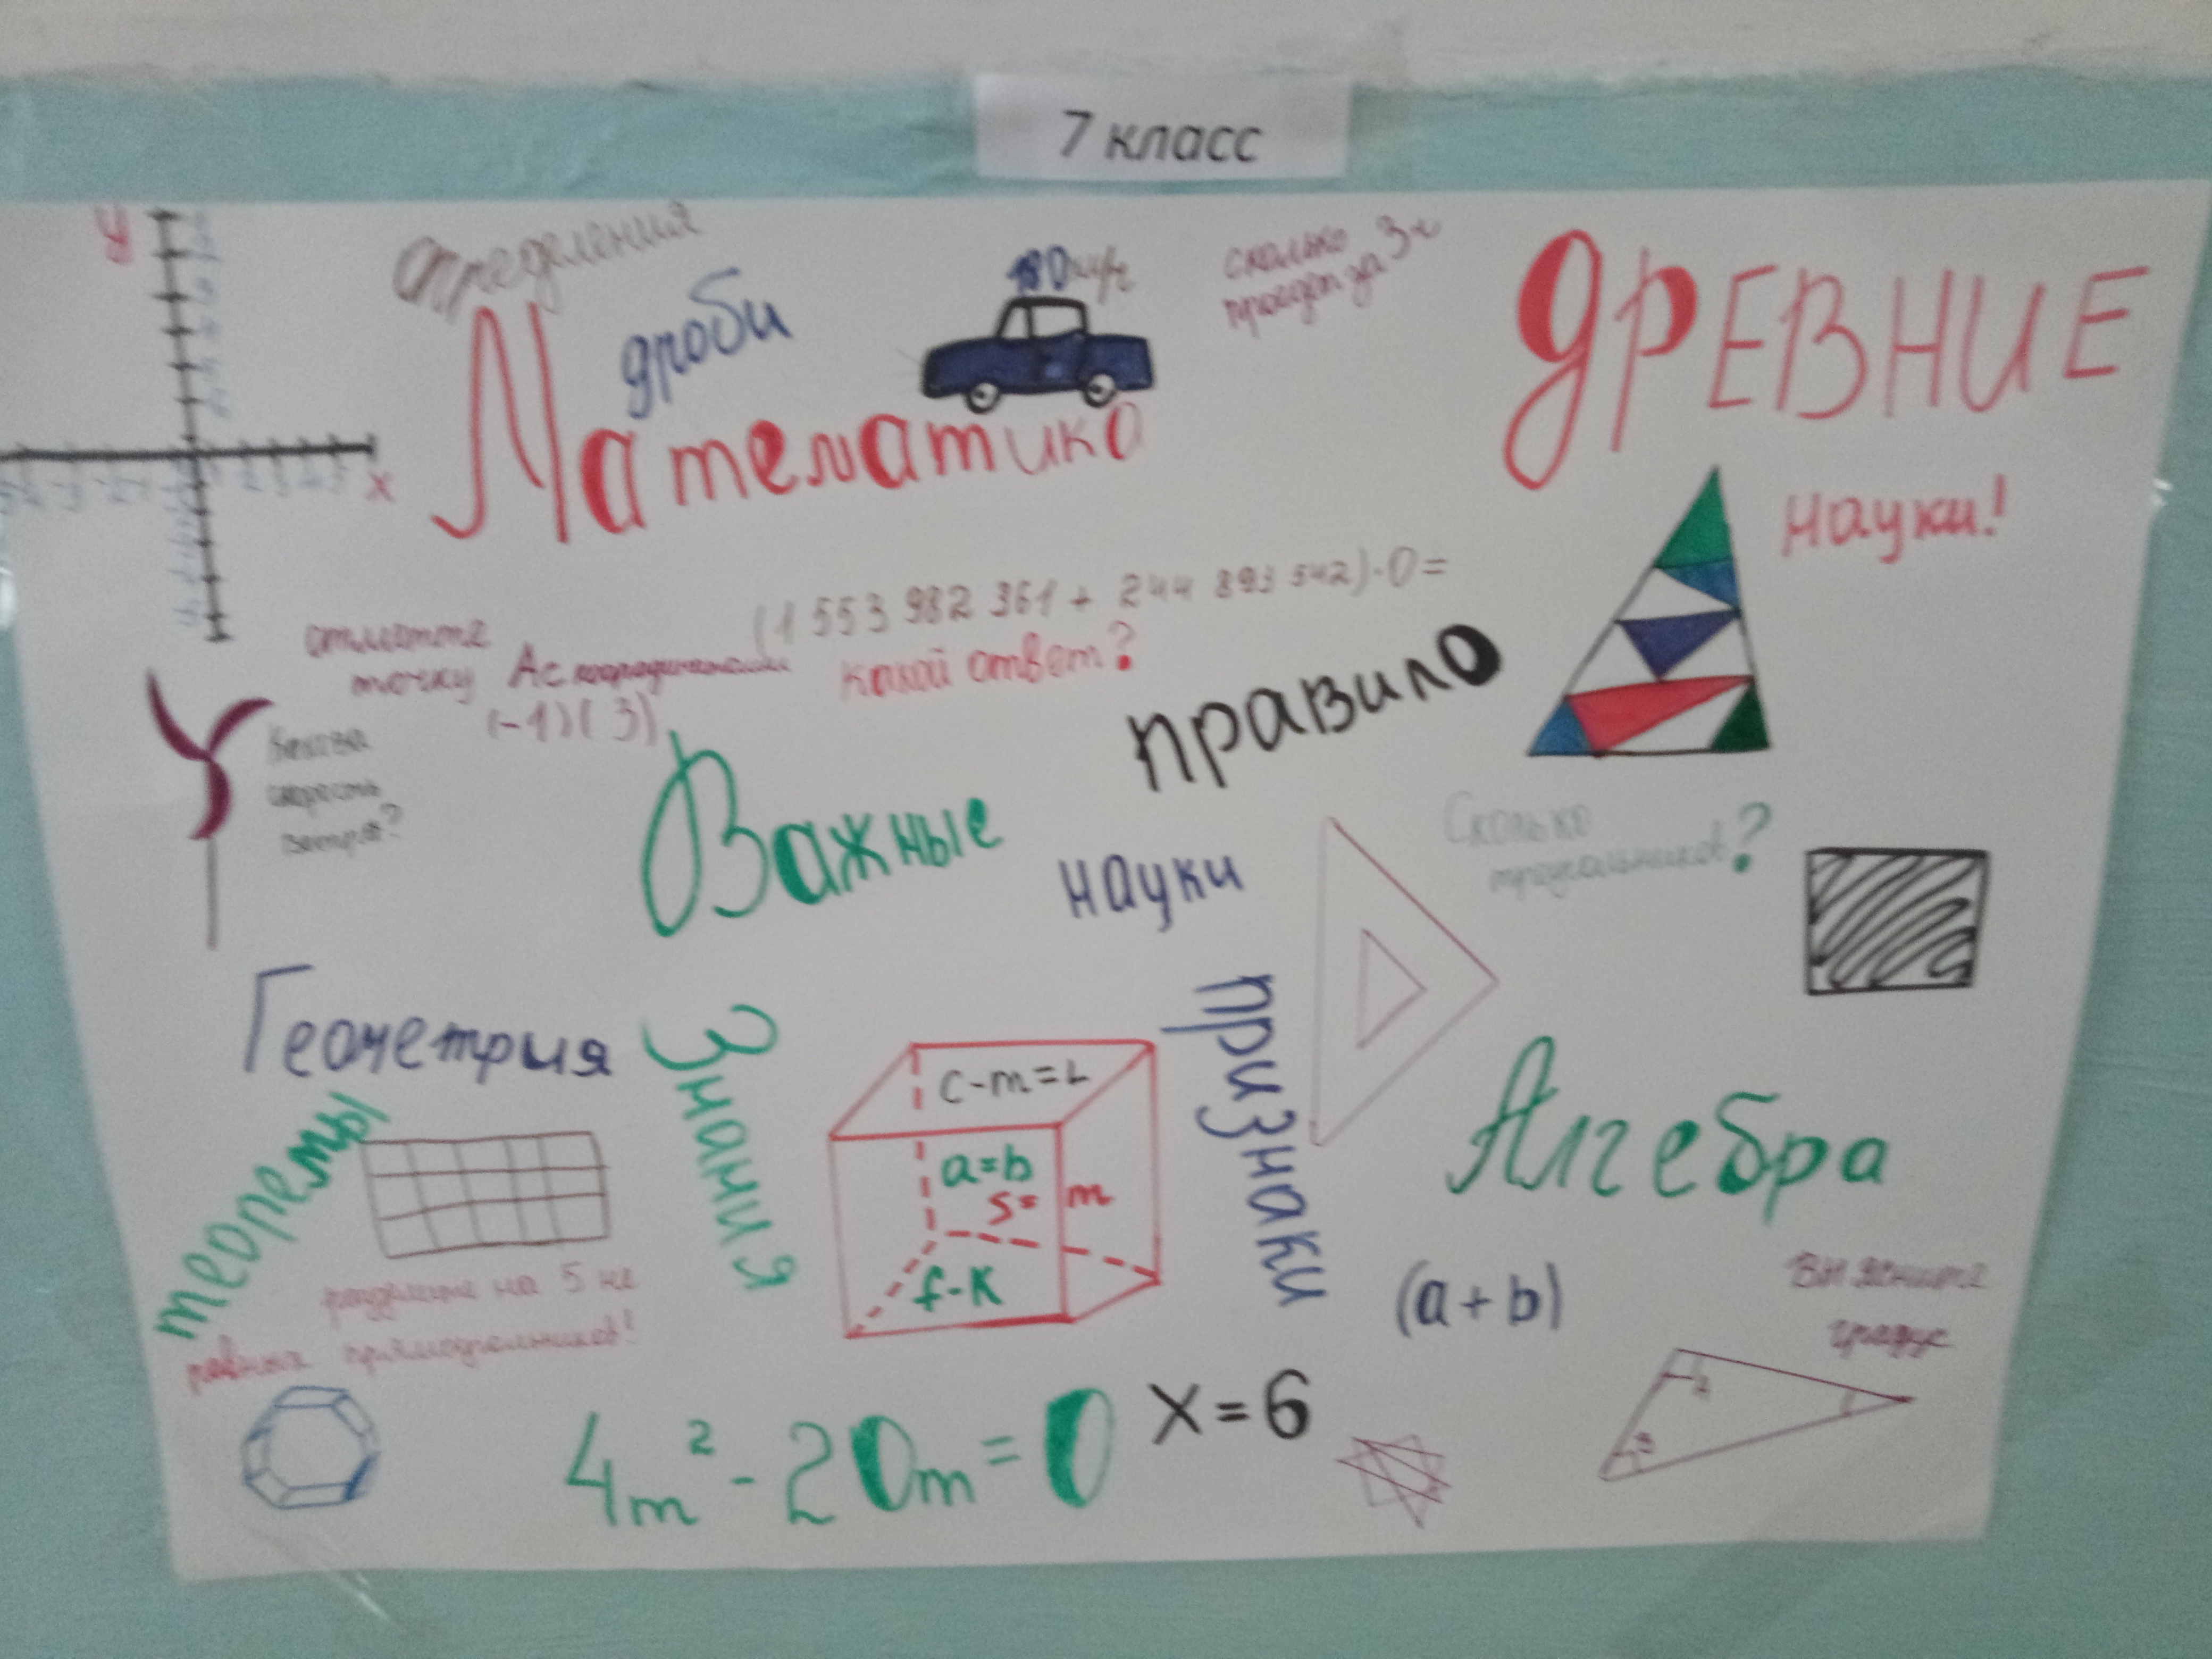 7 класс
У
Определения
дроби
сколько
проедет за 3 ч
ДРЕВНИЕ
Математика
х
науки!
(1 553 982 361 + 244 893 542)·0=
какой ответ?
отметте
точку А с координатами
(-1)(3)
правило
Какова
скорость
ветра?
Важные
науки
Сколько
треугольников?
Геометрия
Знания
признаки
c-m=L
a=b
S=
m
f-K
Алгебра
теоремы
разделите на 5 не
равных прямоугольников!
(a+b)
градус
4m²-20m=0
x=6